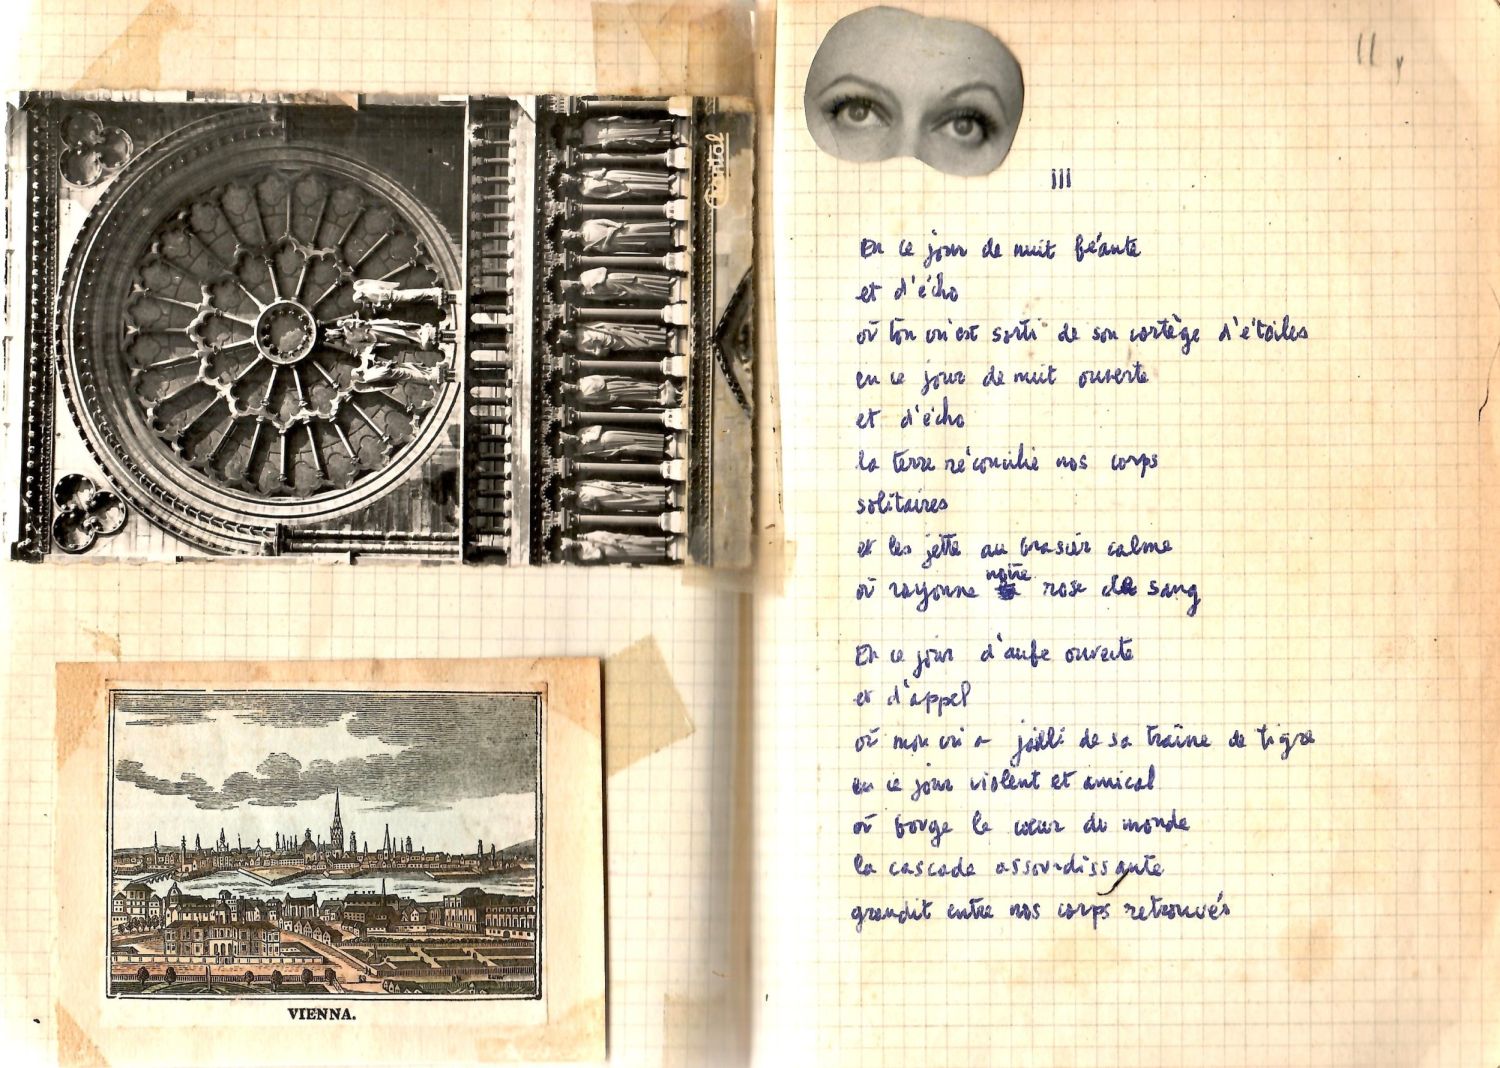 Cantal
VIENNA.
11
III
En ce jour de nuit béante
et d'écho
où ton cri est sorti de son cortège d'étoiles
en ce jour de nuit ouverte
et d'écho
la terre réconcilie nos corps
solitaires
et les jette au brasier calme
où rayonne notre rose de sang
En ce jour d'aube ouverte
et d'appel
où mon cri a jailli de sa traîne de tigre
en ce jour violent et amical
où bouge le cœur du monde
la cascade assourdissante
grandit entre nos corps retrouvés